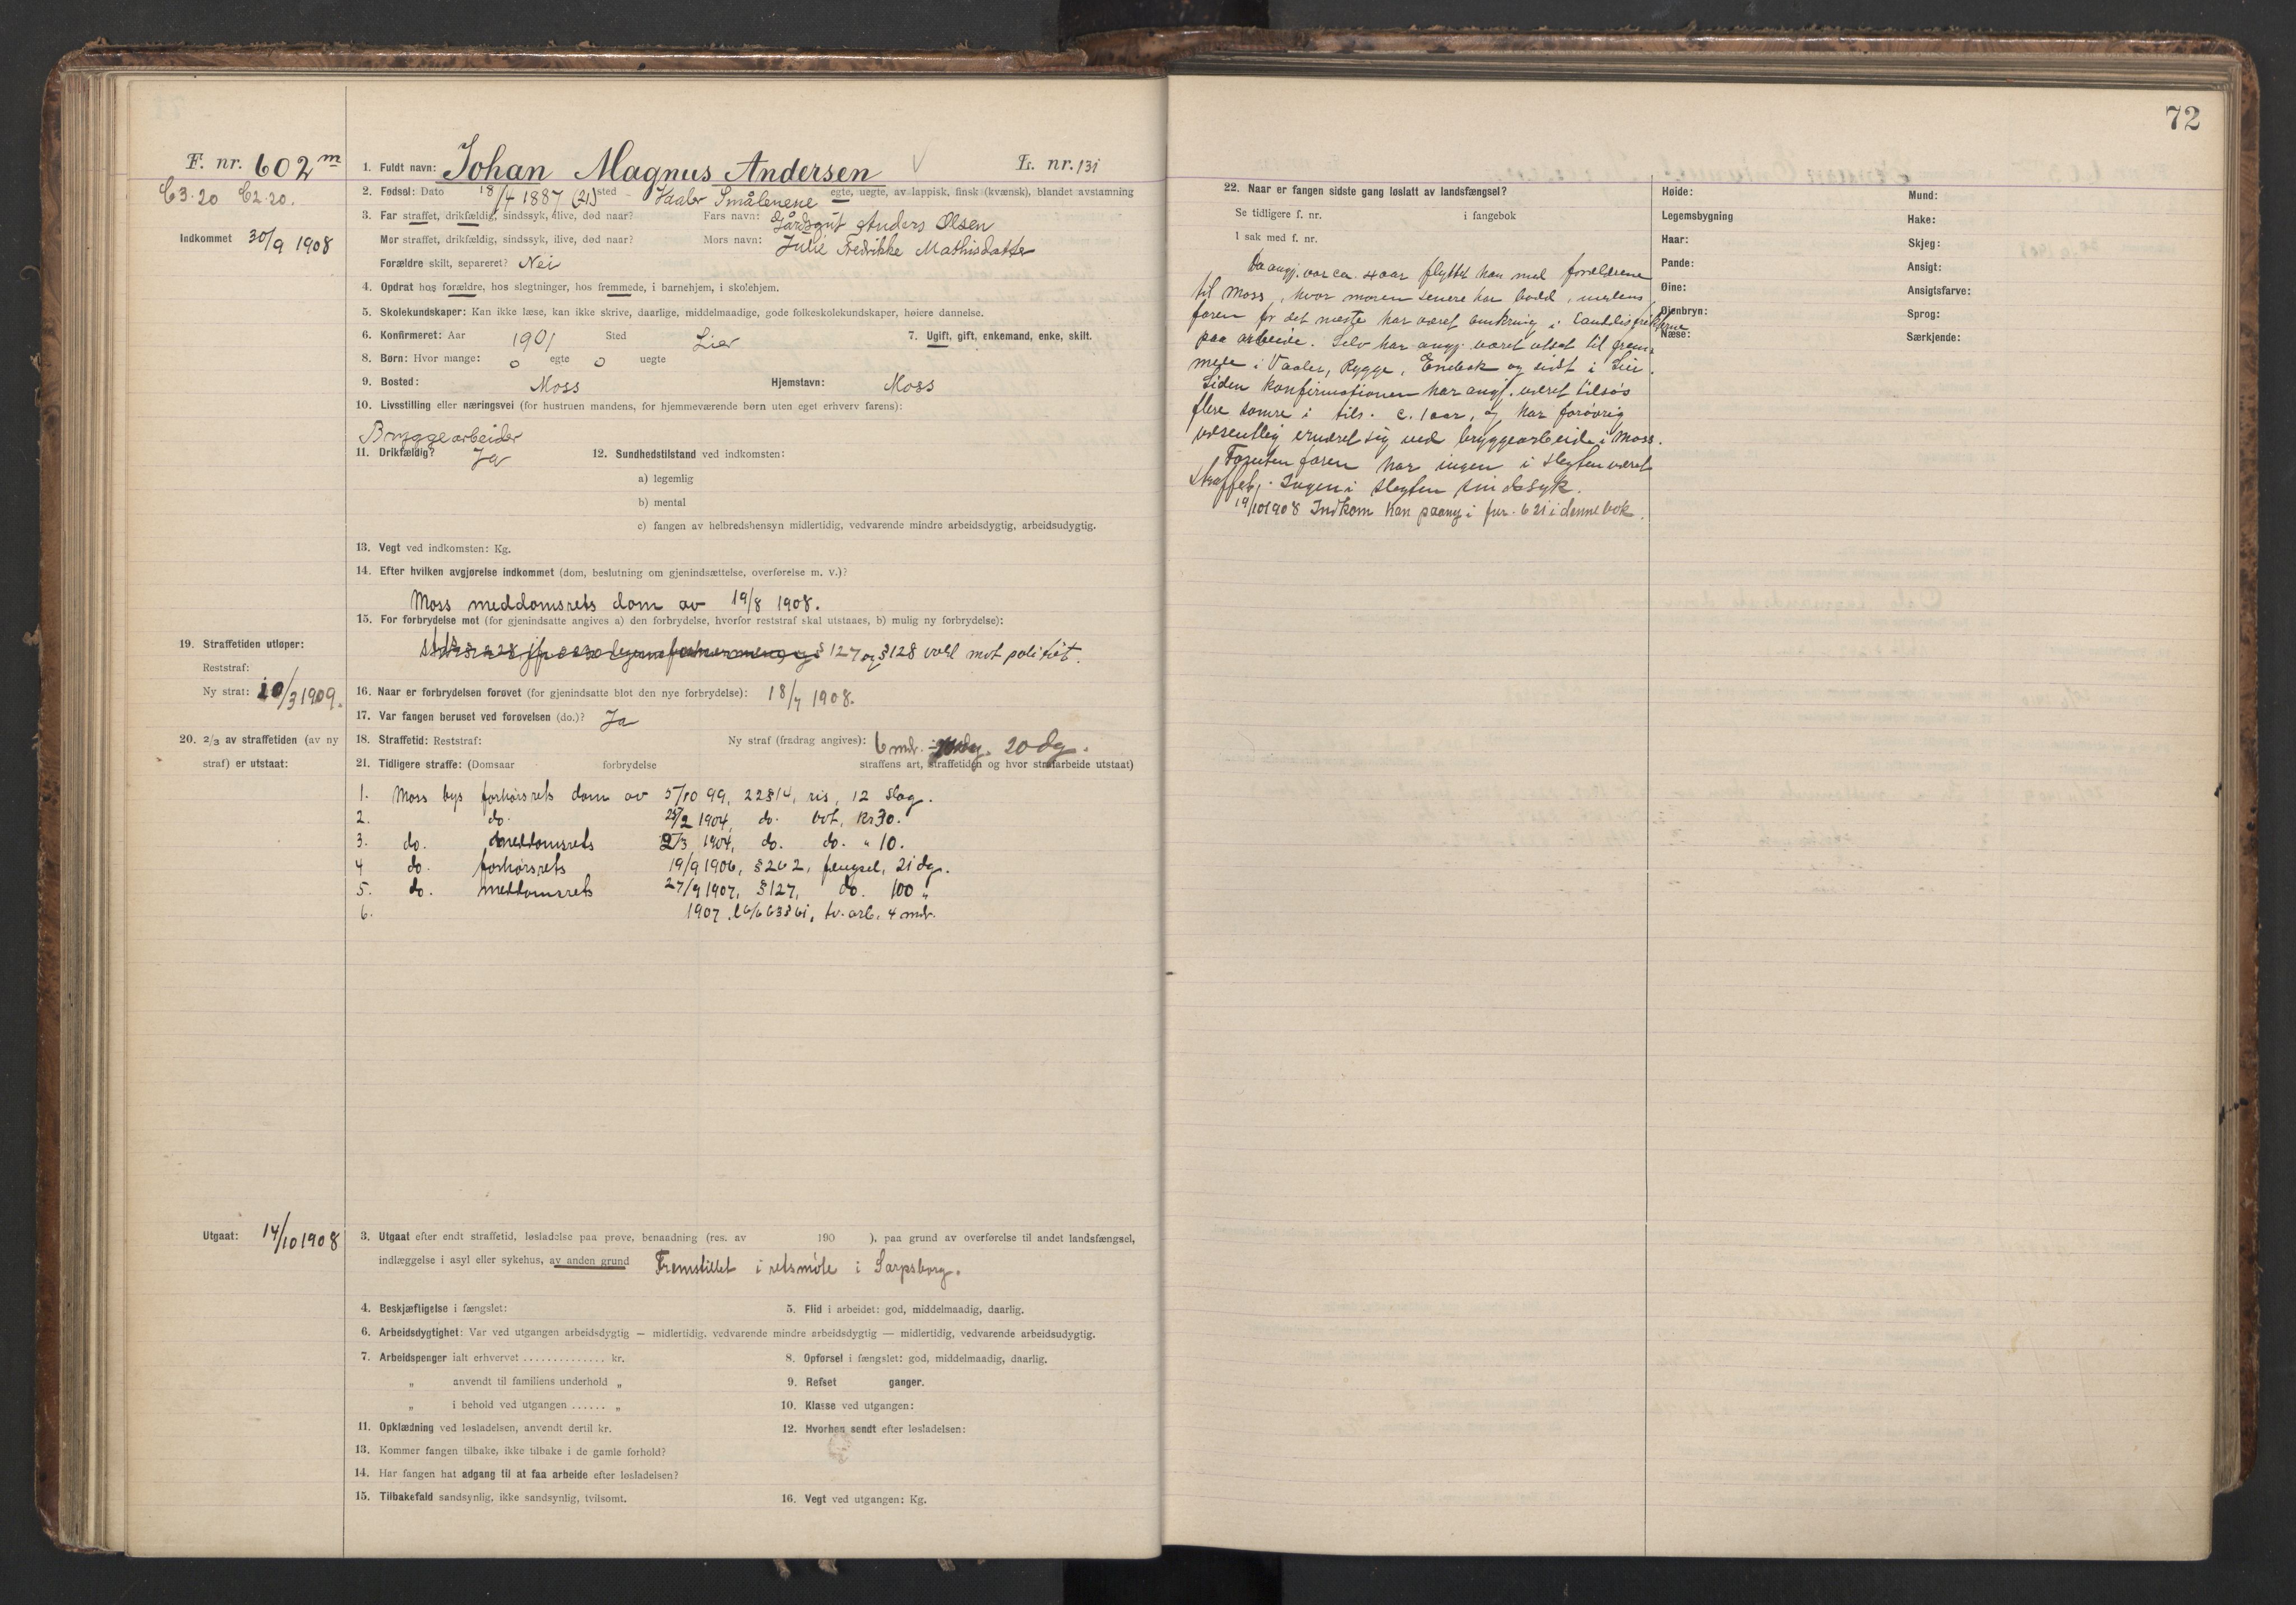 72
F. nr. 602 m
1. Fuldt navn: Johan Magnus Andersen L. nr. 131
C3.20 C2.20.
2. Fødsel: Dato 18/4 1887 (21) sted Vaaler Smålenene egte, uegte, av lappisk, finsk (kvænsk), blandet avstamning
3. Far straffet, drikfældig, sindssyk, ilive, død naar? Fars navn: Gårdsgut Anders Olsen
Indkommet 30/9 1908
Mor straffet, drikfældig, sindssyk, ilive, død naar? Mors navn: Julie Fredrikke Mathisdatter
Forældre skilt, separeret? Nei
4. Opdrat hos forældre, hos slegtninger, hos fremmede, i barnehjem, i skolehjem.
5. Skolekundskaper: Kan ikke læse, kan ikke skrive, daarlige, middelmaadige, gode folkeskolekundskaper, høiere dannelse.
6. Konfirmeret: Aar 1901 Sted Lier 7. Ugift, gift, enkemand, enke, skilt.
8. Børn: Hvor mange: 0 egte 0 uegte
9. Bosted: Moss Hjemstavn: Moss
10. Livsstilling eller næringsvei (for hustruen mandens, for hjemmeværende børn uten eget erhverv farens):
Bryggearbeider
11. Drikfældig? Ja 12. Sundhedstilstand ved indkomsten:
a) legemlig
b) mental
c) fangen av helbredshensyn midlertidig, vedvarende mindre arbeidsdygtig, arbeidsudygtig.
13. Vegt ved indkomsten: Kg.
14. Efter hvilken avgjørelse indkommet (dom, beslutning om gjenindsættelse, overførelse m. v.)?
Moss meddomsrets dom av 19/8 1908.
15. For forbrydelse mot (for gjenindsatte angives a) den forbrydelse, hvorfor reststraf skal utstaaes, b) mulig ny forbrydelse):
§ 127 og § 128 vold mot politiet.
19. Straffetiden utløper:
Reststraf:
Ny straf: 10/3 1909.
16. Naar er forbrydelsen forøvet (for gjenindsatte blot den nye forbrydelse): 18/7 1908.
17. Var fangen beruset ved forøvelsen (do.)? Ja
20. 2/3 av straffetiden (av ny
straf) er utstaat:
18. Straffetid: Reststraf: Ny straf (fradrag angives): 6 mdr. 20 dg.
21. Tidligere straffe: (Domsaar forbrydelse straffens art, straffetiden og hvor strafarbeide utstaat)
1. Moss bys forhørsrets dom av 5/10 99, 22 § 14, ris, 12 slag.
2. do. 25/2 1904, do. bot, kr 30.
3. do. meddomsrets 2/3 1904, do. do. " 10.
4 do. forhørsrets 19/9 1906, § 262, fengsel, 21 dg.
5. do. meddomsrets 27/9 1907, § 127, do. 100 "
6. 1907, tv. arb. 4 mdr.
Utgaat: 14/10 1908
3. Utgaat efter endt straffetid, løsladelse paa prøve, benaadning (res. av 190 ), paa grund av overførelse til andet landsfængsel,
indlæggelse i asyl eller sykehus, av anden grund Fremstillet i retsmöte i Sarpsborg.
4. Beskjæftigelse i fængslet: 5. Flid i arbeidet: god, middelmaadig, daarlig.
6. Arbeidsdygtighet: Var ved utgangen arbeidsdygtig — midlertidig, vedvarende mindre arbeidsdygtig — midlertidig, vedvarende arbeidsudygtig.
7. Arbeidspenger ialt erhvervet .............. kr. 8. Opførsel i fængslet: god, middelmaadig, daarlig.
„ anvendt til familiens underhold „ 9. Refset ganger.
„ i behold ved utgangen ...... „ 10. Klasse ved utgangen:
11. Opklædning ved løsladelsen, anvendt dertil kr. 12. Hvorhen sendt efter løsladelsen:
13. Kommer fangen tilbake, ikke tilbake i de gamle forhold?
14. Har fangen hat adgang til at faa arbeide efter løsladelsen?
15. Tilbakefald sandsynlig, ikke sandsynlig, tvilsomt. 16. Vegt ved utgangen: Kg.
22. Naar er fangen sidste gang løslatt av landsfængsel?
Se tidligere f. nr. i fangebok
I sak med f. nr.
Da angj. var ca. 4 aar flyttet han med forældrene
til Moss, hvor moren senere har bodd, medens
faren for det meste har været omkring i landdistrikterne
paa arbeide. Selv har angj. været utsat til frem-
mede i Vaaler, Rygge, Enebak og sidst i Lier.
Siden konfirmationen har angj. været tilsös
flere somre i tils. c. 1 aar, og har forövrig
væsentlig ernæret sig ved bryggearbeide i Moss.
Foruten faren har ingen i slegten været
straffet. Ingen i slegten sindssyk.
19/10 1908 Indkom han paany i fnr. 621 i denne bok.
Høide:
Legemsbygning
Haar:
Pande:
Øine:
Øienbryn:
Næse:
Mund:
Hake:
Skjeg:
Ansigt:
Ansigtsfarve:
Sprog:
Særkjende: